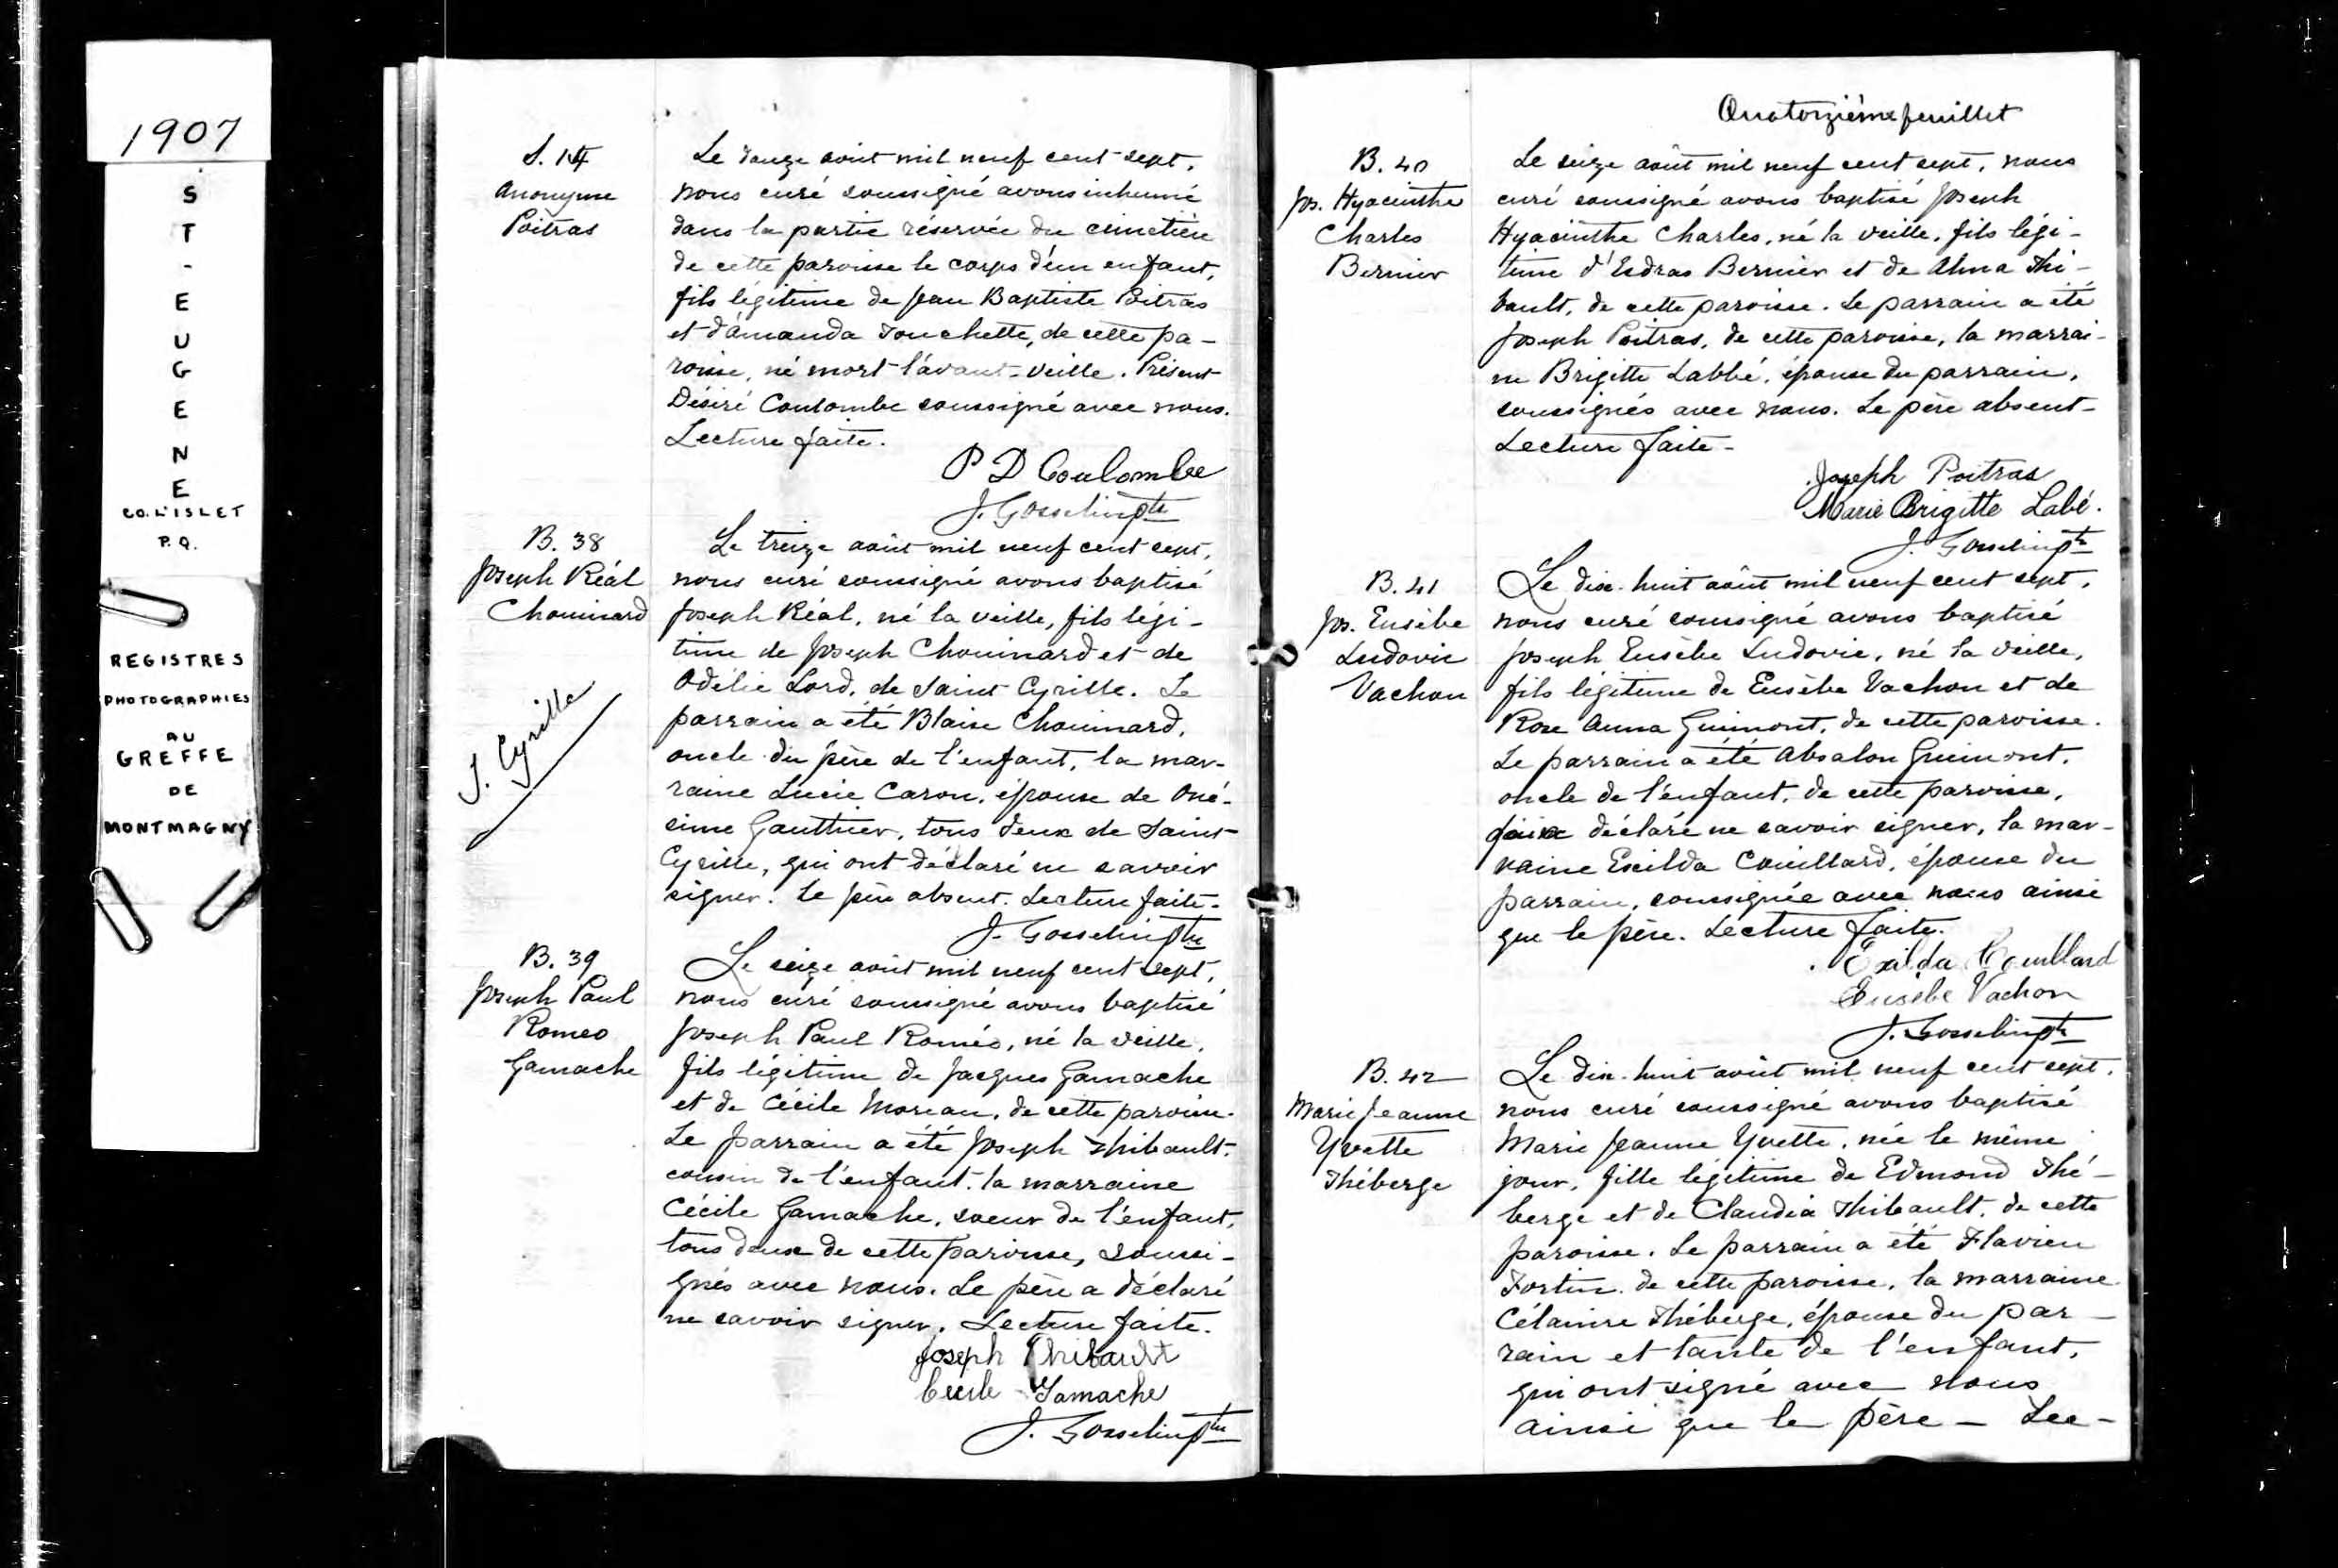 1907
S
T
-
E
U
G
E
N
E
CO. L'ISLET
P.Q.
REGISTRES
PHOTOGRAPHIES
AU
GREFFE
DE
MONTMAGNY
S. 14
Anonyme
Poitras
Le douze août mil neuf cent sept,
nous curé soussigné avons inhumé
dans la partie réservée du cimetière
de cette paroisse le corps d'un enfant,
fils légitime de Jean Baptiste Poitras
et d'Amanda Touchette, de cette pa-
roisse, né mort l'avant-veille. Présent
Désiré Coulombe soussigné avec nous.
Lecture faite.
P D Coulombe
J. Gosselin ptre
B. 38
Joseph Réal
Chouinard
S. Cyrille
Le treize août mil neuf cent sept,
nous curé soussigné avons baptisé
Joseph Réal, né la veille, fils légi-
time de Joseph Chouinard et de
Odélie Lord, de Saint Cyrille. Le
parrain a été Blaise Chouinard,
oncle du père de l'enfant, la mar-
raine Lucie Caron, épouse de Oné-
sime Gauthier, tous deux de Saint-
Cyrille, qui ont déclaré ne savoir
signer. Le père absent. Lecture faite.
J. Gosselin ptre
B. 39
Joseph Paul
Romeo
Gamache
Le seize août mil neuf cent sept,
nous curé soussigné avons baptisé
Joseph Paul Roméo, né la veille,
fils légitime de Jacques Gamache
et de Cécile Moreau, de cette paroisse.
Le parrain a été Joseph Thibault,
cousin de l'enfant, la marraine
Cécile Gamache, soeur de l'enfant,
tous deux de cette paroisse, soussi-
gnés avec nous. Le père a déclaré
ne savoir signer. Lecture faite.
Joseph Thibault
Cecile Gamache
J. Gosselin ptre
Quatorzième feuillet
B. 40
Jos. Hyacinthe
Charles
Bernier
Le seize août mil neuf cent sept, nous
curé soussigné avons baptisé Joseph
Hyacinthe Charles, né la veille, fils légi-
time d'Esdras Bernier et de Alma Thi-
bault, de cette paroisse. Le parrain a été
Joseph Poitras, de cette paroisse, la marrai-
ne Brigitte Labbé, épouse du parrain,
soussignés avec nous. Le père absent-
Lecture faite-
Joseph Poitras
Marie Brigitte Labé.
J. Gosselin ptre
B. 41
Jos. Eusèbe
Ludovic
Vachon
Le dix-huit août mil neuf cent sept,
nous curé soussigné avons baptisé
Joseph Eusèbe Ludovic, né la veille,
fils légitime de Eusèbe Vachon et de
Rose Anna Guimont, de cette paroisse.
Le parrain a été Absalon Guimont,
oncle de l'enfant, de cette paroisse,
déclaré ne savoir signer, la mar-
raine Exilda Couillard, épouse du
parrain, soussignée avec nous ainsi
que le père. Lecture faite.
Exilda Couillard
Eusèbe Vachon
J. Gosselin ptre
B. 42
Marie Jeanne
Yvette
Théberge
Le dix-huit août mil neuf cent sept,
nous curé soussigné avons baptisé
Marie Jeanne Yvette, née le même
jour, fille légitime de Edmond Thé-
berge et de Claudia Thibault, de cette
paroisse. Le parrain a été Flavien
Fortin, de cette paroisse, la marraine
Célanire Théberge, épouse du par-
rain et tante de l'enfant,
qui ont signé avec nous
ainsi que le père - Lec-